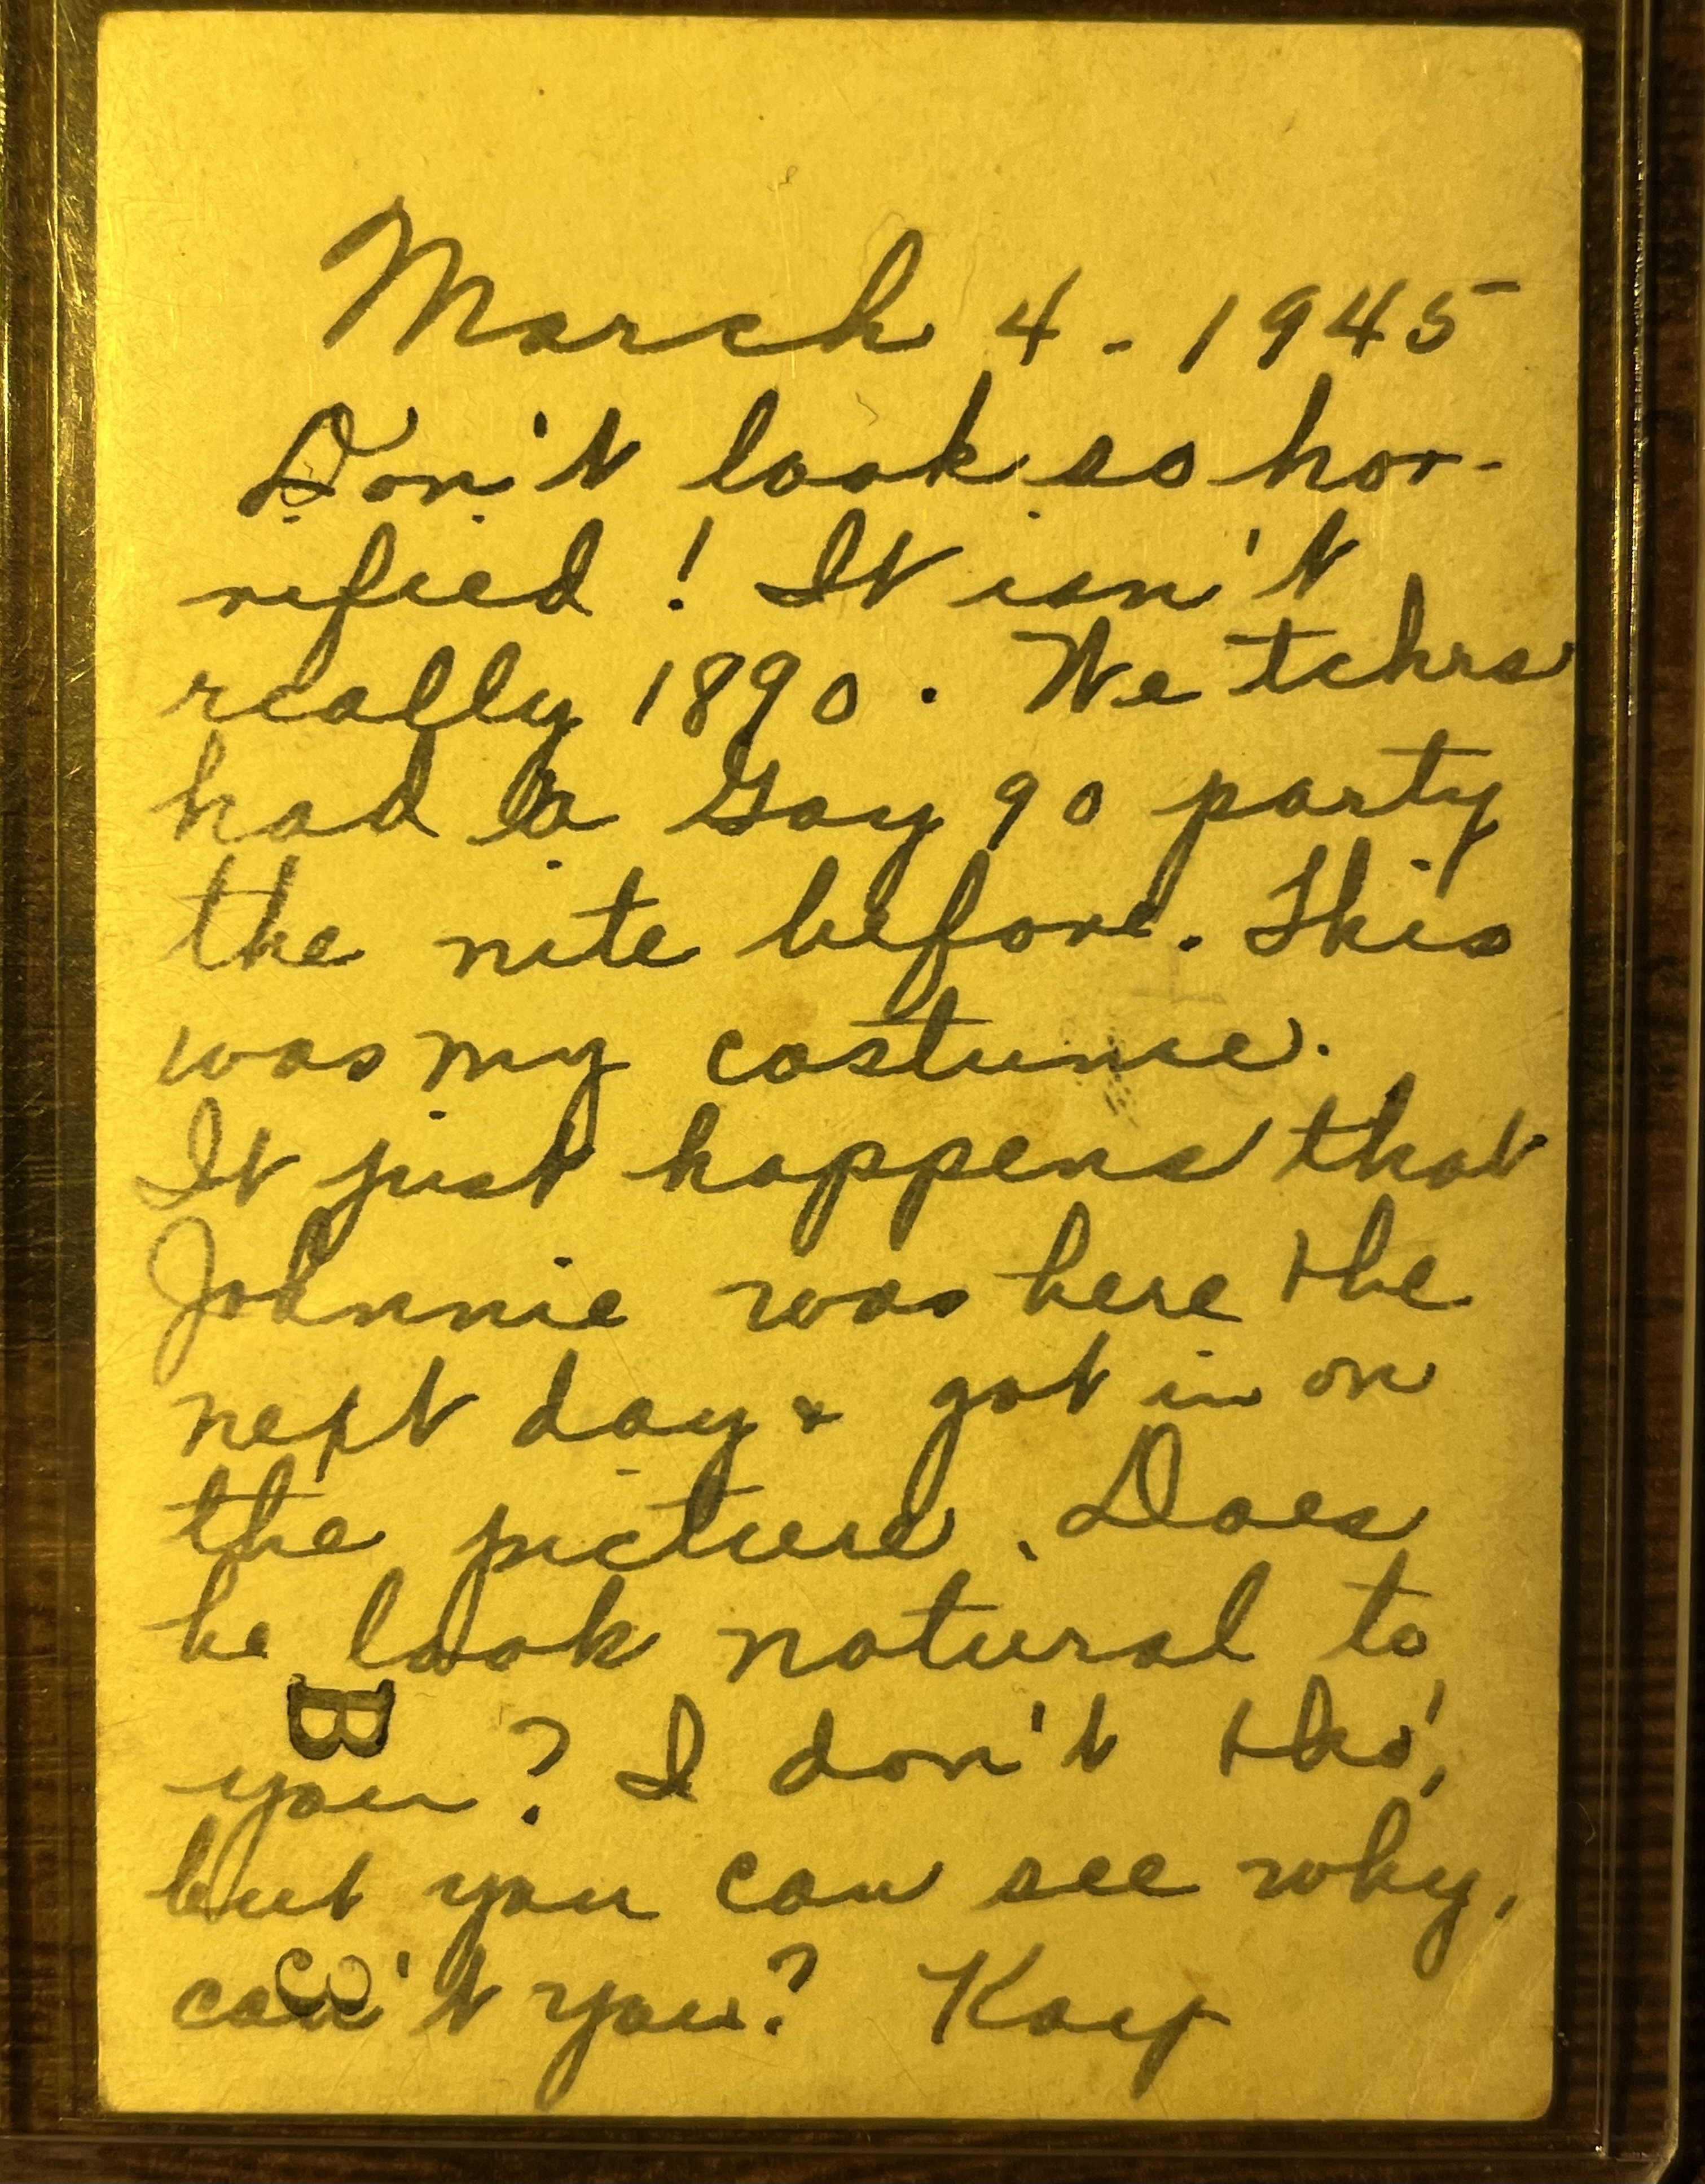 March 4 - 1945
Don't look so hor-
rified! It isn't
really 1890. We tchrs
had a Gay 90 party
the nite before. This
was my costume.
It just happens that
Johnnie was here the
next day & got in on
the picture. Does
he look natural to
B
you? I don't tho',
but you can see why,
can't you? Kay